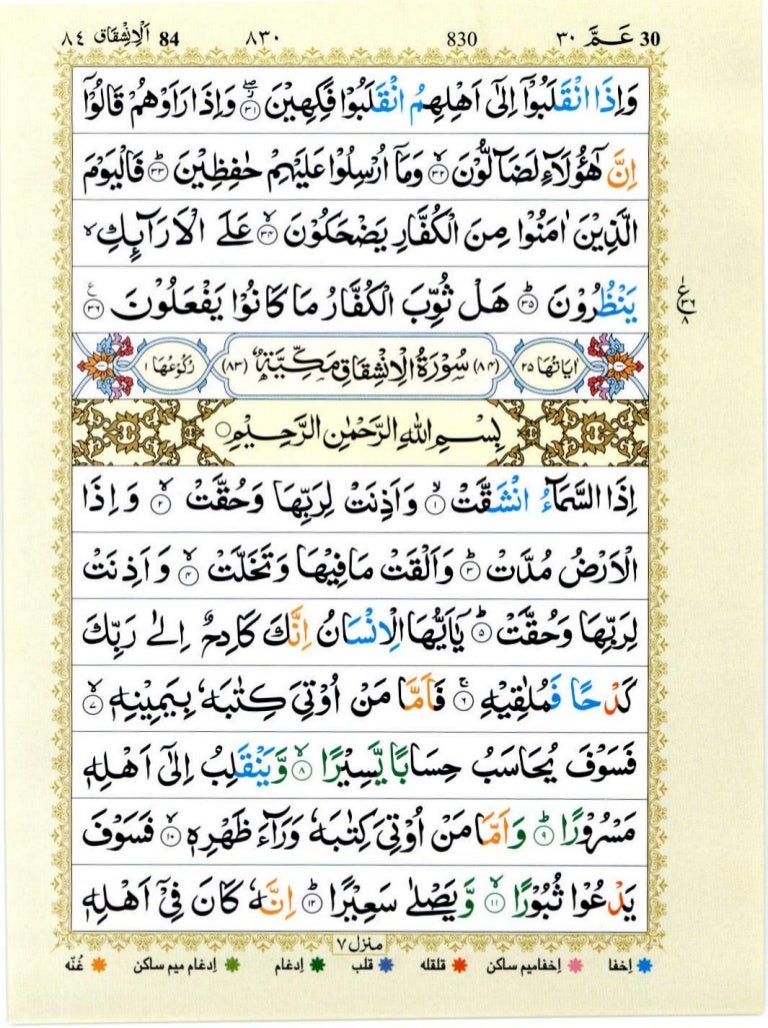 30 عَمَّ ٣٠ 830 ٨٣٠ 84 اَلْاِنْشِقَاق ٨٤
وَاِذَا انْقَلَبُوْۤا اِلٰۤى اَهْلِهِمُ انْقَلَبُوْا فَكِهِيْنَ ۖ﴿۳۱﴾ وَاِذَا رَاَوْهُمْ قَالُوْۤا
اِنَّ هٰۤؤُلَآءِ لَضَآلُّوْنَ ۙ﴿۳۲﴾ وَمَاۤ اُرْسِلُوْا عَلَيْهِمْ حٰفِظِيْنَ ؕ﴿۳۳﴾ فَالْيَوْمَ
الَّذِيْنَ اٰمَنُوْا مِنَ الْكُفَّارِ يَضْحَكُوْنَ ۙ﴿۳۴﴾ عَلَى الْاَرَآئِكِ ۙ
يَنْظُرُوْنَ ؕ﴿۳۵﴾ هَلْ ثُوِّبَ الْكُفَّارُ مَا كَانُوْا يَفْعَلُوْنَ ﴿۳۶﴾
ع ٣٦ ٨
اٰيَاتُهَا ٢٥ (٨٤) سُوْرَةُ الْاِنْشِقَاقِ مَكِّيَّةٌ (٨٣) رُكُوْعُهَا ١
بِسْمِ اللّٰهِ الرَّحْمٰنِ الرَّحِيْمِ
اِذَا السَّمَآءُ انْشَقَّتْ ۙ﴿۱﴾ وَاَذِنَتْ لِرَبِّهَا وَحُقَّتْ ۙ﴿۲﴾ وَاِذَا
الْاَرْضُ مُدَّتْ ؕ﴿۳﴾ وَاَلْقَتْ مَا فِيْهَا وَتَخَلَّتْ ۙ﴿۴﴾ وَاَذِنَتْ
لِرَبِّهَا وَحُقَّتْ ؕ﴿۵﴾ يٰۤاَيُّهَا الْاِنْسَانُ اِنَّكَ كَادِحٌ اِلٰى رَبِّكَ
كَدْحًا فَمُلٰقِيْهِ ۚ﴿۶﴾ فَاَمَّا مَنْ اُوْتِىَ كِتٰبَهٗ بِيَمِيْنِهٖ ۙ﴿۷﴾
فَسَوْفَ يُحَاسَبُ حِسَابًا يَّسِيْرًا ۙ﴿۸﴾ وَّيَنْقَلِبُ اِلٰۤى اَهْلِهٖ
مَسْرُوْرًا ؕ﴿۹﴾ وَاَمَّا مَنْ اُوْتِىَ كِتٰبَهٗ وَرَآءَ ظَهْرِهٖ ۙ﴿۱۰﴾ فَسَوْفَ
يَدْعُوْا ثُبُوْرًا ۙ﴿۱۱﴾ وَّيَصْلٰى سَعِيْرًا ؕ﴿۱۲﴾ اِنَّهٗ كَانَ فِىْۤ اَهْلِهٖ
منزل ٧
اِخفا اِخفامیم ساکن قلقله قلب اِدغام اِدغام میم ساکن غُنّه